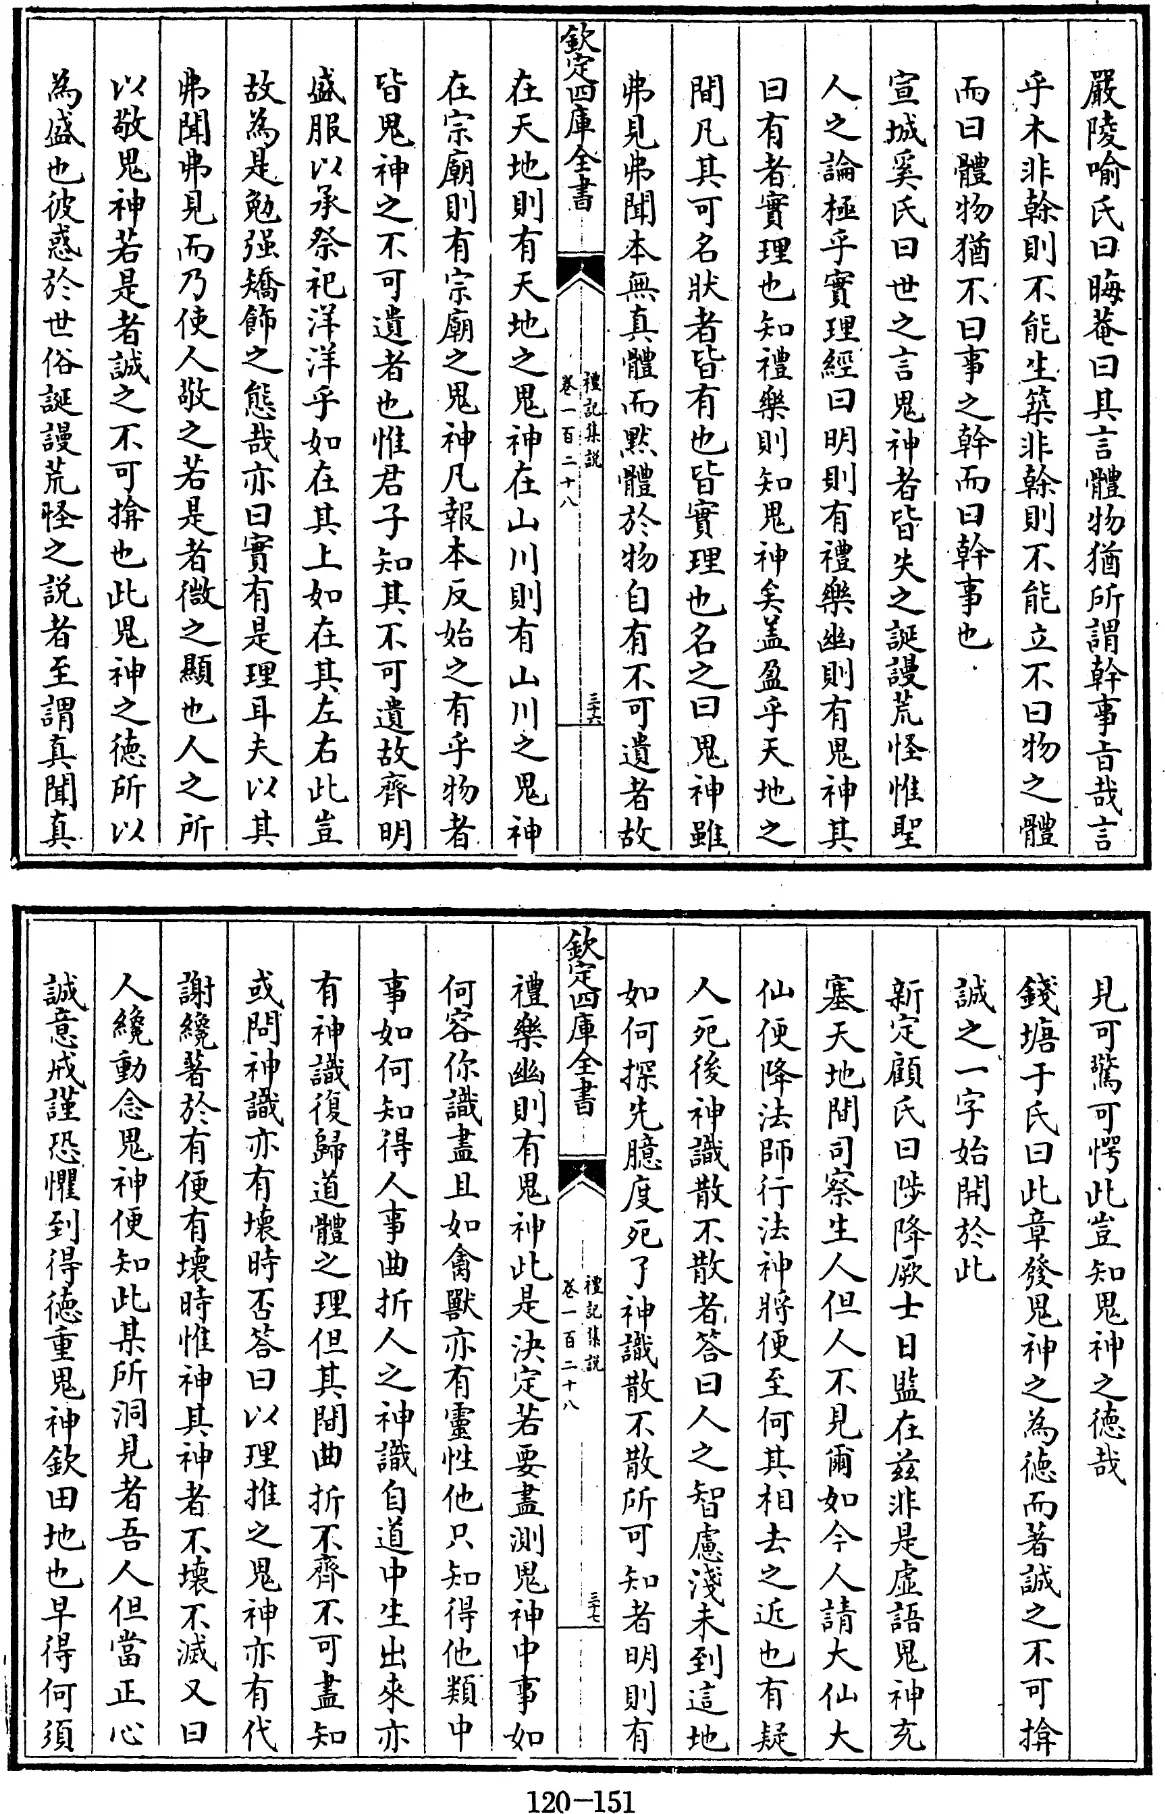 嚴陵喻氏曰晦菴曰其言體物猶所謂幹事旨哉言
乎木非榦則不能生築非榦則不能立不曰物之體
而曰體物猶不曰事之幹而曰幹事也
宣城奚氏曰世之言鬼神者皆失之誕謾荒怪惟聖
人之論極乎實理經曰明則有禮樂幽則有鬼神其
曰有者實理也知禮樂則知鬼神矣盖盈乎天地之
間凡其可名狀者皆有也皆實理也名之曰鬼神雖
弗見弗聞本無真體而默體於物自有不可遺者故
欽定四庫全書
禮記集説
卷一百二十八
三十六
在天地則有天地之鬼神在山川則有山川之鬼神
在宗廟則有宗廟之鬼神凡報本反始之有乎物者
皆鬼神之不可遺者也惟君子知其不可遺故齊明
盛服以承祭祀洋洋乎如在其上如在其左右此豈
故為是勉强矯飾之態哉亦曰實有是理耳夫以其
弗聞弗見而乃使人敬之若是者微之顯也人之所
以敬鬼神若是者誠之不可揜也此鬼神之德所以
為盛也彼惑於世俗誕謾荒怪之説者至謂真聞真
見可驚可愕此豈知鬼神之德哉
錢塘于氏曰此章發鬼神之為德而著誠之不可揜
誠之一字始開於此
新定顧氏曰陟降厥士日監在兹非是虚語鬼神充
塞天地間司察生人但人不見爾如今人請大仙大
仙便降法師行法神將便至何其相去之近也有疑
人死後神識散不散者答曰人之智慮淺未到這地
如何探先臆度死了神識散不散所可知者明則有
欽定四庫全書
禮記集説
卷一百二十八
三十七
禮樂幽則有鬼神此是決定若要盡測鬼神中事如
何容你識盡且如禽獸亦有靈性他只知得他類中
事如何知得人事曲折人之神識自道中生出來亦
有神識復歸道體之理但其間曲折不齊不可盡知
或問神識亦有壞時否答曰以理推之鬼神亦有代
謝纔著於有便有壞時惟神其神者不壞不滅又曰
人纔動念鬼神便知此某所洞見者吾人但當正心
誠意戒謹恐懼到得德重鬼神欽田地也早得何須
120-151